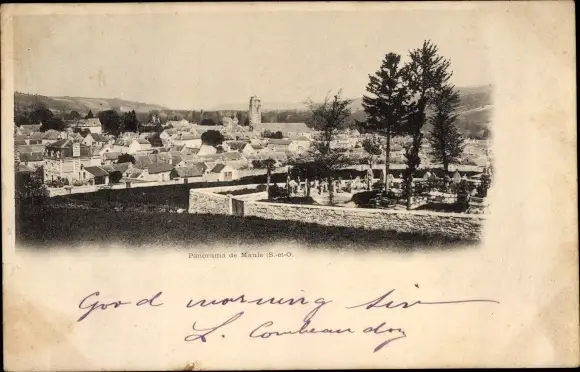 Panorama de Maule (S.-et-O.
Good morning Sir
L. Combeaudoz